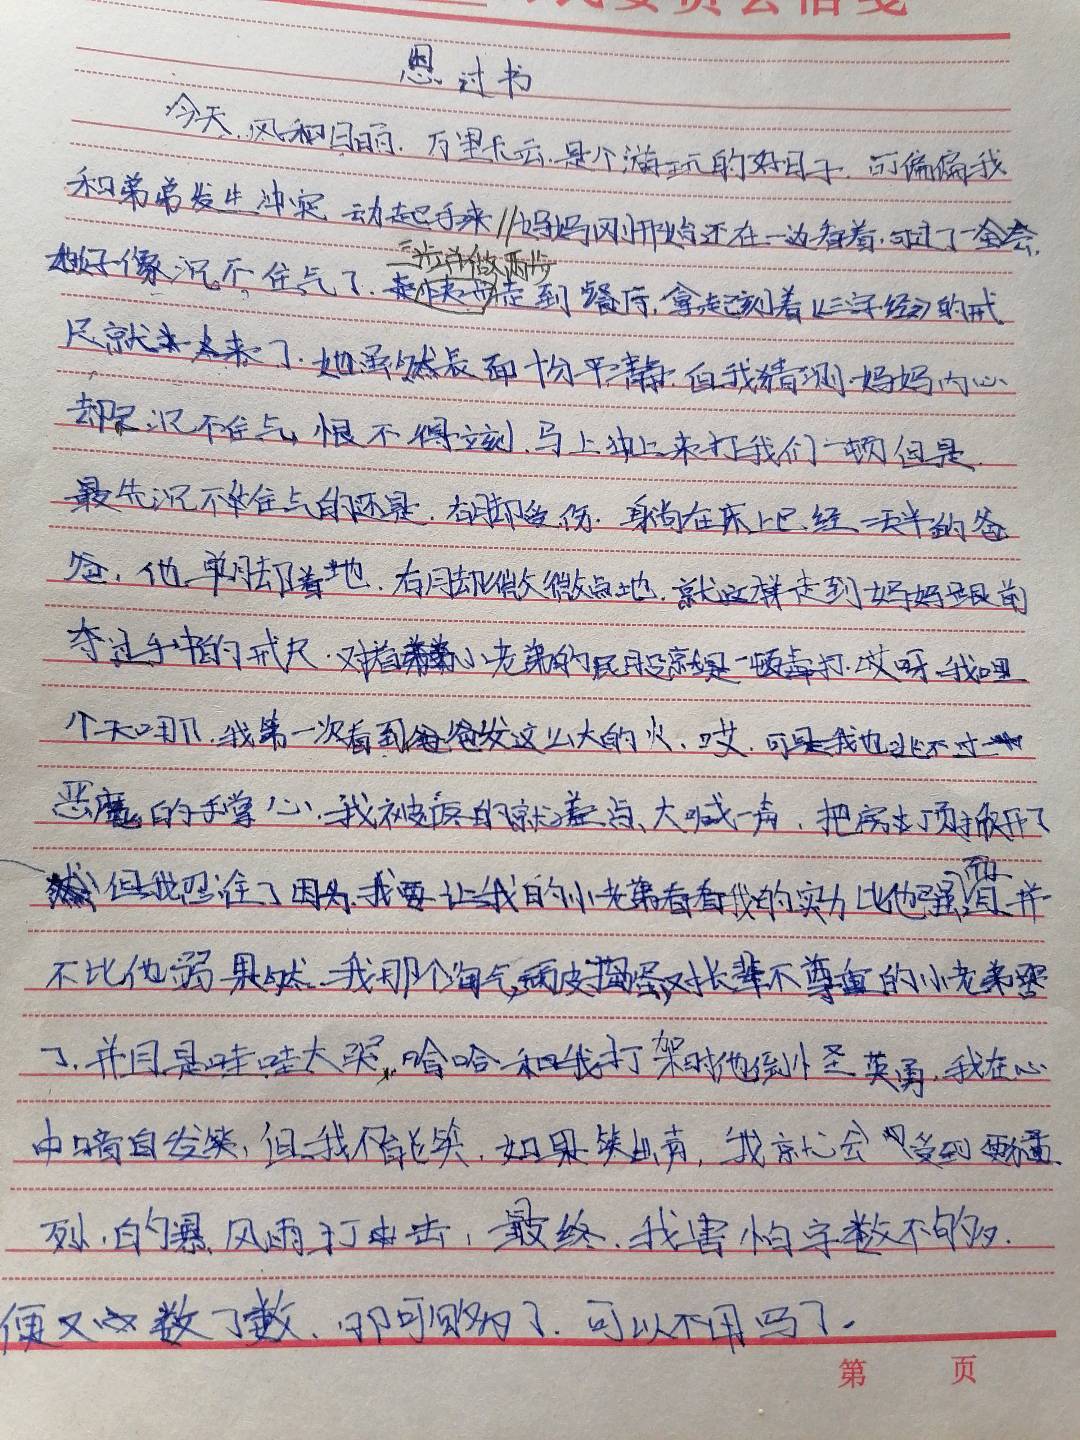 民委员会信笺
思过书
今天,风和日丽,万里长云,是个游玩的好日子,可偏偏我
和弟弟发生冲突 动起手来//妈妈刚开始还在一边看着,可过了一会,
她好像沉不住气了,三步并做两步走到餐厅,拿起刻着《三字经》的戒
尺就来了,她虽然表面十分平静,但我猜测妈妈内心
却是沉不住气,恨不得立刻,马上冲上来打我们一顿但是
最先沉不住气的还是,右脚受伤,身尚在床上已经一天半的爸
爸,他单脚着地,右脚微微点地,就这样走到妈妈跟前
夺过手中的戒尺,对着小老弟的屁股就是一顿虐打,哎呀,我哩
个天呐,我第一次看到爸爸发这么大的火,哎,可是我也逃不过
恶魔的手掌心,我被疼的就差点、大喊一声,把房顶掀开了
但我忍住了因为,我要让我的小老弟看看我的实力比他强,而且并
不比他弱果然,我那个淘气,顽皮,对长辈不尊重的小老弟哭
了,并且是哇哇大哭,哈哈和我打架时他倒怪英勇,我在心
中暗自发笑,但我不能笑,如果笑出声,我就会受到更猛
烈,的暴风雨打击,最终,我害怕字数不够,
便又数了数,耶可购了,可以不用骂了.
第 页